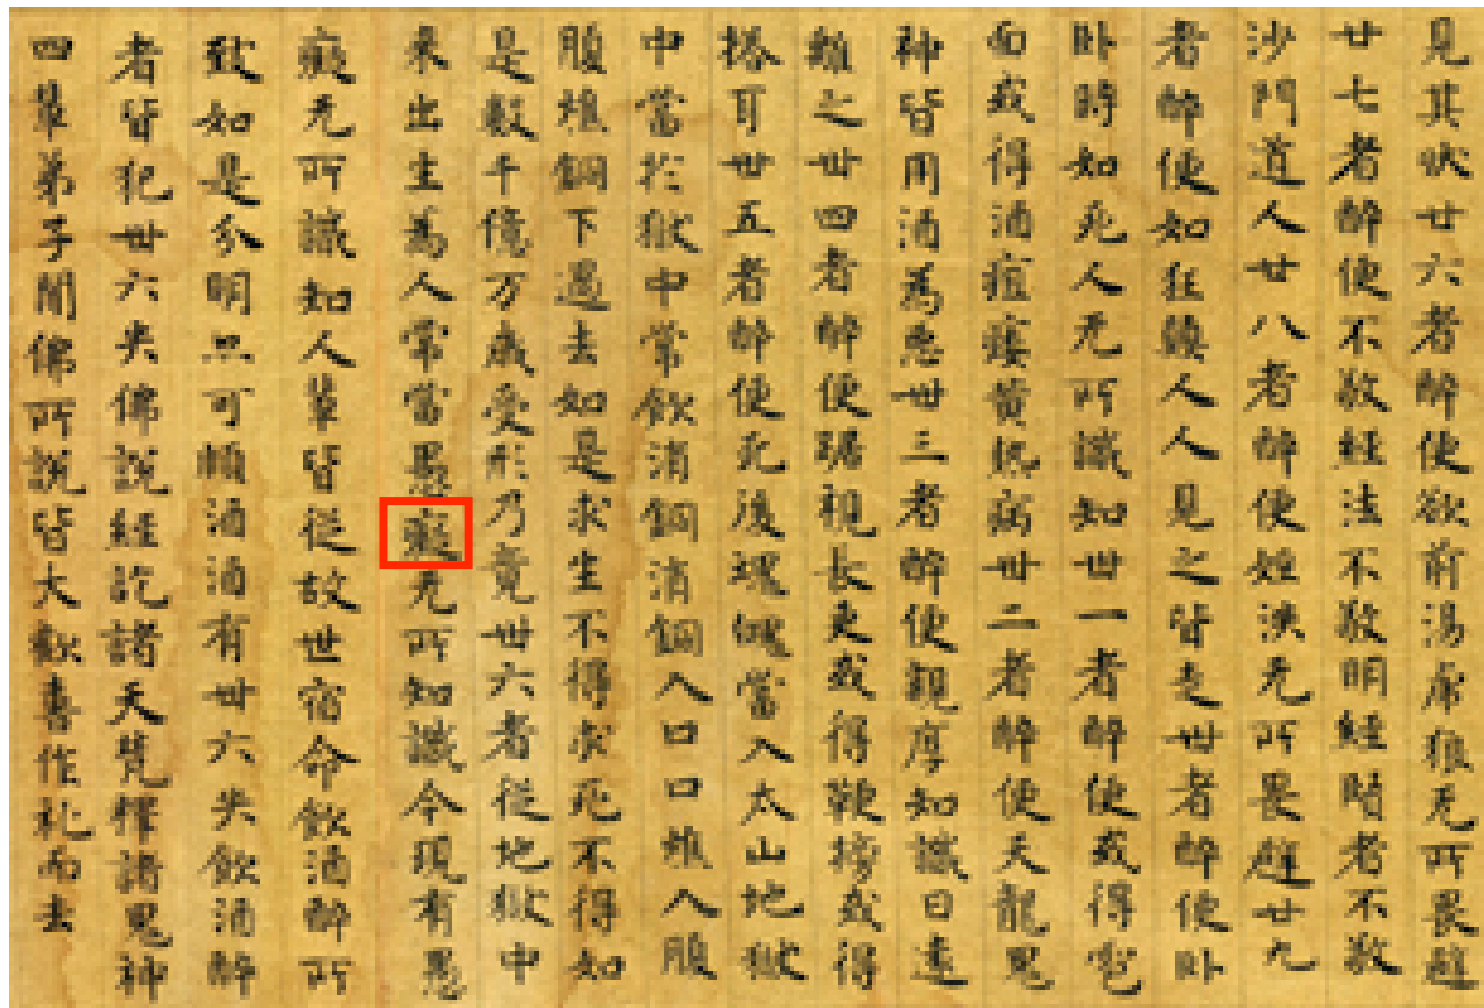 見其狀廿六者醉使欲前湯虎狼无所畏避
廿七者醉使不敬經法不敬明經賢者不敬
沙門道人廿八者醉便婬泆无所畏避廿九
者醉使如狂顛人人見之皆走卅者醉使卧
卧時如死人无所識知卅一者醉使或得皰
面或得酒疸痿黃熱病卅二者醉使天龍鬼
神皆用酒為惡卅三者醉使親厚知識日遠
離之卅四者醉便踞視長吏或得鞭搒或得
搭耳卅五者醉使死後魂魄當入太山地獄
中當於獄中常飲消銅消銅入口口燋入腹
腹燋銅下過去如是求生不得求死不得如
是數千億万歲受形乃竟卅六者從地獄中
來出生為人常當愚癡无所知識今現有愚
癡无所識知人輩皆從故世宿命飲酒醉所
致如是分明亦可慎酒酒有卅六失飲酒醉
者皆犯卅六失佛說經訖諸天梵釋諸鬼神
四輩弟子聞佛所說皆大歡喜作礼而去